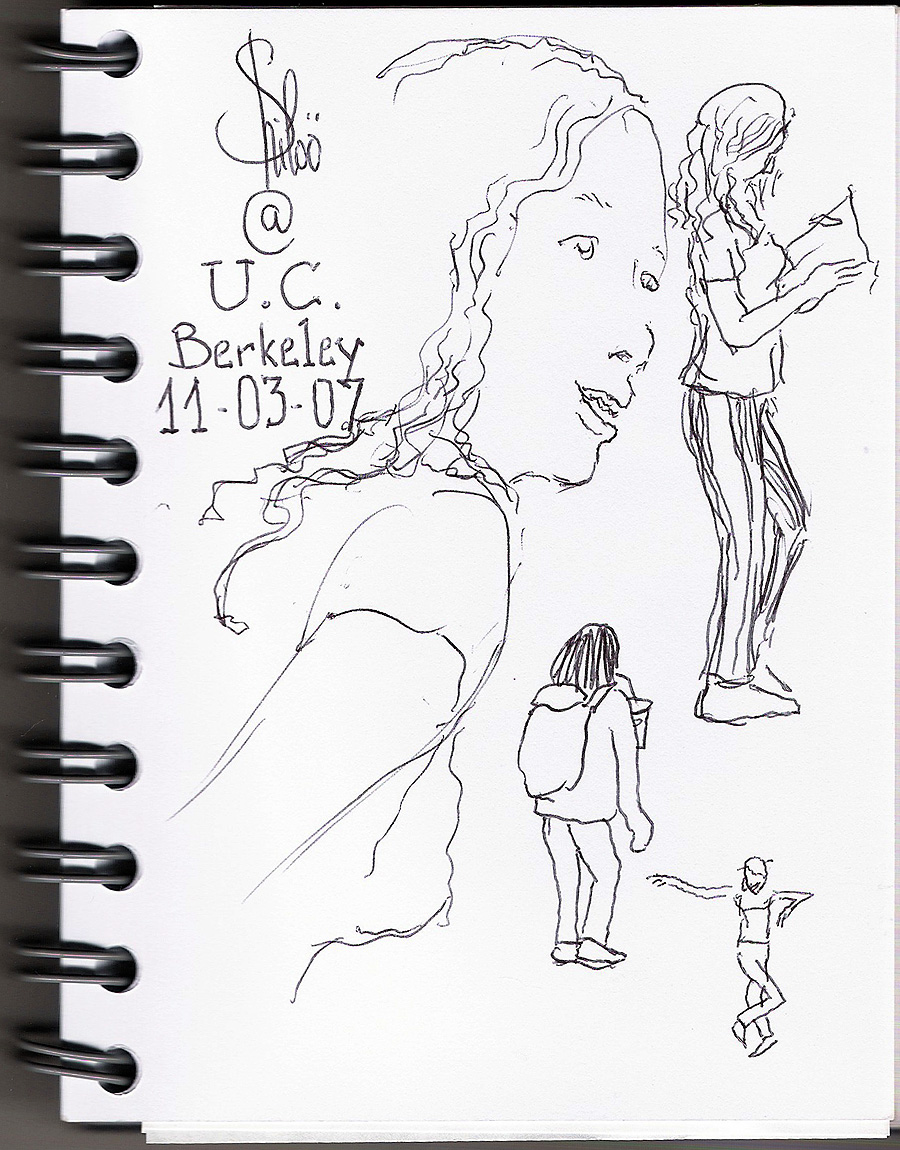 Shiloö
@
U.C.
Berkeley
11-03-07